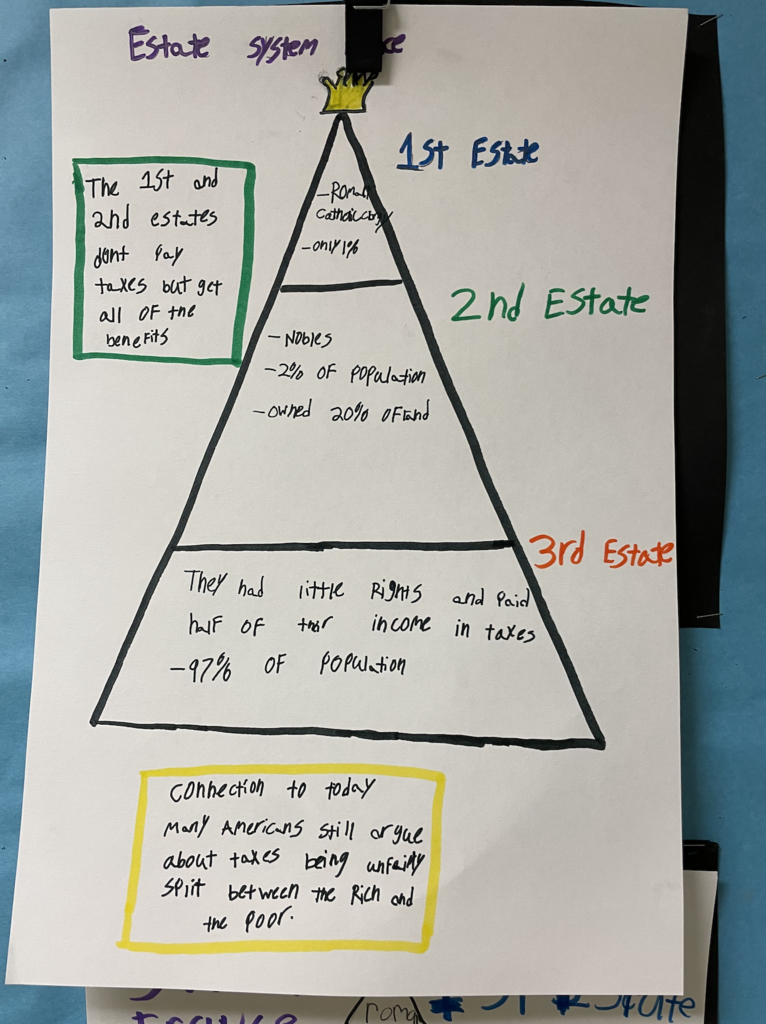 Estate system
1st Estate
The 1st and
2nd estates
dont Pay
taxes but get
all of the
benefits
-Roman
Catholic
-only 1%
2nd Estate
-Nobles
-2% of Population
-owned 20% of land
3rd Estate
They had little Rights and Paid
half of their income in taxes
-97% of Population
Connection to today
Many Americans still argue
about taxes being unfairly
split between the Rich and
the Poor.